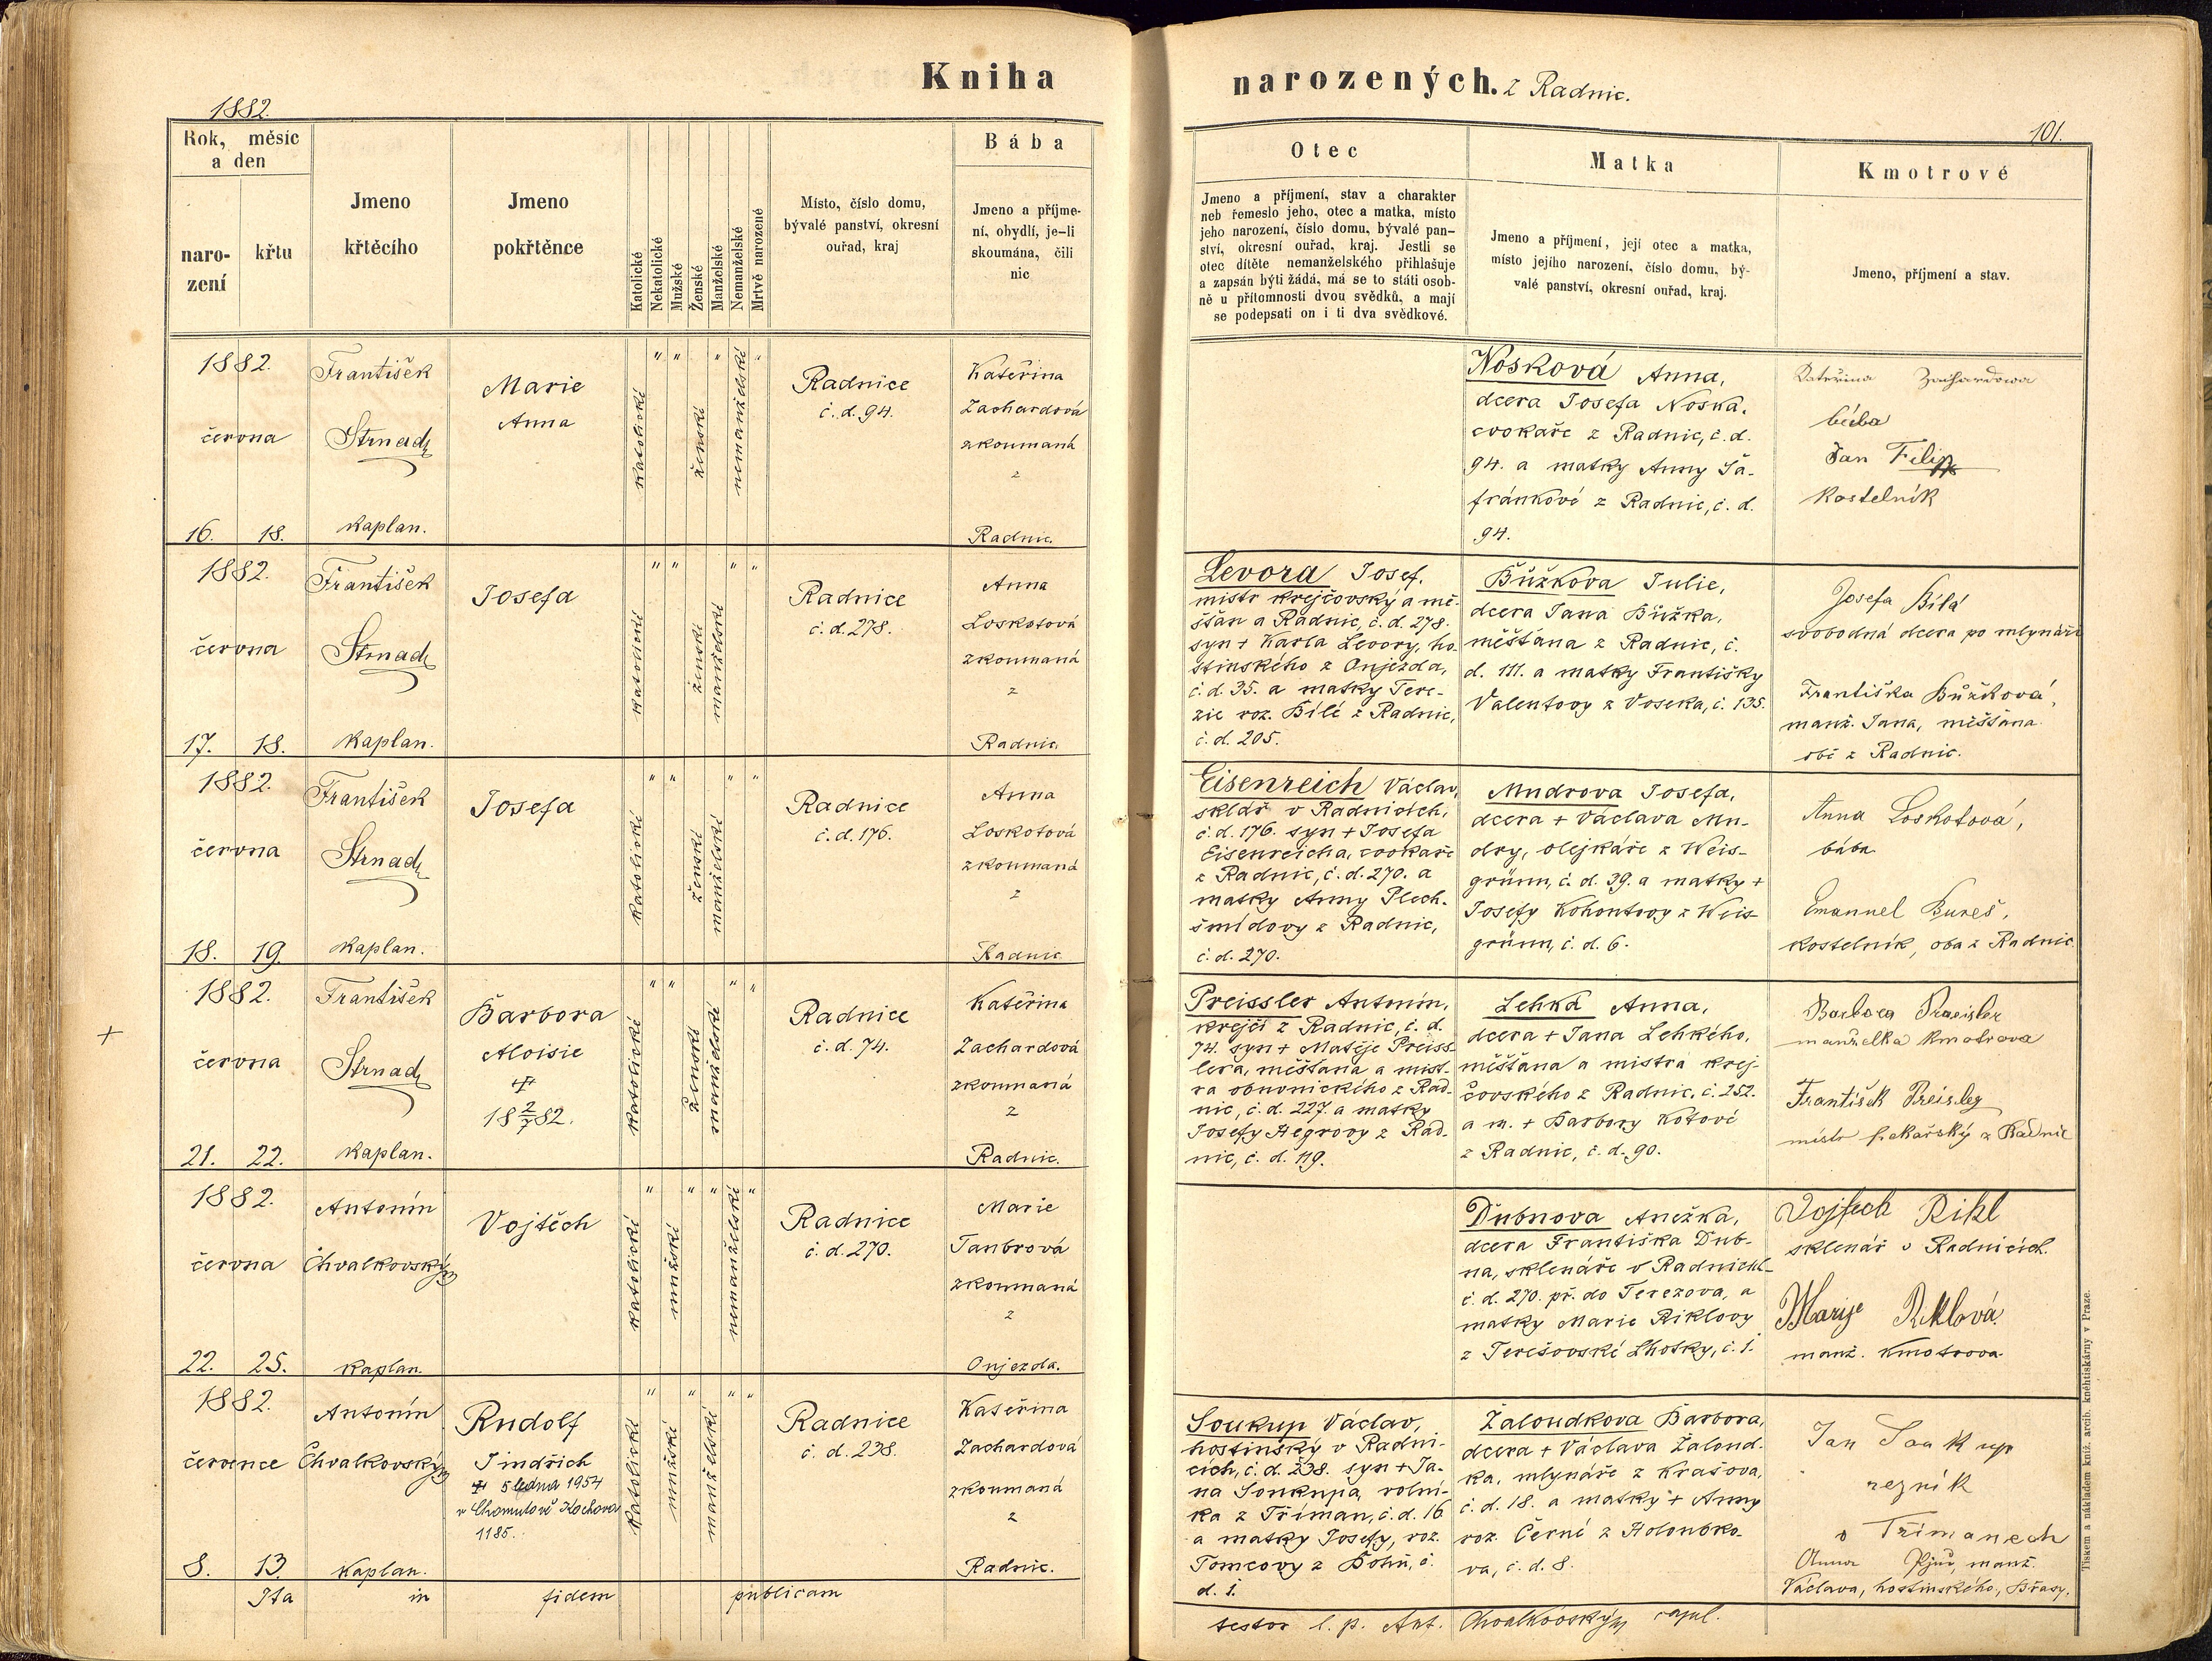 Kniha
narozených. z Radnic.
1882.
101.
Rok, měsíc a den
narození
křtu
Jmeno křtěcího
Jmeno pokřtěnce
Katolické
Nekatolické
Mužské
Ženské
Manželské
Nemanželské
Mrtvě narozené
Místo, číslo domu,
bývalé panství, okresní
ouřad, kraj
Bába
Jmeno a příjme-
ní, obydlí, je-li
skoumána, čili
nic
Otec
Jmeno a příjmení, stav a charakter
neb řemeslo jeho, otec a matka, místo
jeho narození, číslo domu, bývalé pan-
ství, okresní ouřad, kraj. Jestli se
otec dítěte nemanželského přihlašuje
a zapsán býti žádá, má se to státi osob-
ně u přítomnosti dvou svědků, a mají
se podepsati on i ti dva svědkové.
Matka
Jmeno a příjmení, její otec a matka,
místo jejího narození, číslo domu, bý-
valé panství, okresní ouřad, kraj.
Kmotrové
Jmeno, příjmení a stav.
1882.
června
16. 18.
František
Strnad
kaplan.
Marie
Anna
katolické
ženské
nemanželské
Radnice
č. d. 94.
Kateřina
Zachardová
zkoumaná
z
Radnic.
Nosková Anna,
dcera Josefa Noska,
cvokaře z Radnic, č. d.
94. a matky Anny Ša-
fránkové z Radnic, č. d.
94.
Kateřina Zachardowa
bába
Jan Filip
kostelník
1882.
června
17. 18.
František
Strnad
kaplan.
Josefa
katolické
ženské
manželské
Radnice
č. d. 278.
Anna
Loskotová
zkoumaná
z
Radnic.
Levora Josef,
mistr krejčovský a mě-
šťan a Radnic, č. d. 278.
syn + Karla Levory, ho-
stinského z Onjezda,
č. d. 35. a matky Tere-
zie roz. Bílé z Radnic,
č. d. 205.
Bůžkova Julie,
dcera Jana Bůžka,
měšťana z Radnic, č.
d. 111. a matky Františky
Valentovy z Voseka, č. 135.
Josefa Bílá
svobodná dcera po mlynáři
Františka Bůžková,
manž. Jana, měšťana
obě z Radnic.
1882.
června
18. 19.
František
Strnad
kaplan.
Josefa
katolické
ženské
manželské
Radnice
č. d. 176.
Anna
Loskotová
zkoumaná
z
Radnic
Eisenreich Václav,
sklář v Radnicích,
č. d. 176. syn + Josefa
Eisenreicha, cvokaře
z Radnic, č. d. 270. a
matky Anny Plech-
šmídovy z Radnic,
č. d. 270.
Mudrova Josefa,
dcera + Václava Mu-
dry, olejkáře z Weis-
grünn, č. d. 39. a matky +
Josefy Kohoutovy z Weis-
grünn, č. d. 6.
Anna Loskotová,
bába
Emanuel Bureš,
kostelník, oba z Radnic.
+
1882.
června
21. 22.
František
Strnad
kaplan.
Barbora
Aloisie
+
18 2/7 82.
katolické
ženské
manželské
Radnice
č. d. 74.
Kateřina
Zachardová
zkoumaná
z
Radnic.
Preissler Antonín,
krejčí z Radnic, č. d.
74. syn + Matěje Preiss-
lera, měšťana a mist-
ra obuvnického z Rad-
nic, č. d. 227. a matky
Josefy Hegrovy z Rad-
nic, č. d. 119.
Lehká Anna,
dcera + Jana Lehkého,
měšťana a mistra krej-
čovského z Radnic, č. 252.
a m. + Barbory Kotové
z Radnic, č. d. 90.
Barbora Praeisler
manželka kmotrova
František Preisler
mistr pekařský z Radnic
1882.
června
22. 25.
Antonín
Chvalkovský
kaplan.
Vojtěch
katolické
mužské
nemanželské
Radnice
č. d. 270.
Marie
Tanbrová
zkoumaná
z
Onjezda.
Dubnova Anežka,
dcera Františka Dub-
na, sklenáře v Radnicích
č. d. 270. př. do Terezova, a
matky Marie Riklovy
z Terešovské Lhotky, č. 1.
Vojtech Rikl
sklenář v Radnicích.
Marye Riklová
manž. kmotrova
1882.
července
8. 13.
Antonín
Chvalkovský
kaplan.
Rudolf
Jindřich
+ 5 ledna 1954
v Chomutově Kochova
1185.
katolické
mužské
manželské
Radnice
č. d. 238.
Kateřina
Zachardová
zkoumaná
z
Radnic.
Soukup Václav,
hostinský v Radni-
cích, č. d. 238. syn + Ja-
na Soukupa, rolní-
ka z Tříman, č. d. 16
a matky Josefy, roz.
Tomcovy z Bohů, č.
d. 1.
Žaloudkova Barbora,
dcera + Václava Žaloud-
ka, mlynáře z Krašova,
č. d. 18. a matky + Anny
roz. Černé z Holoubko-
va, č. d. 8.
Jan Soukup
rezník
v Třímanech
Anna manž.
Václava, hostinského, Břasy.
Ita in fidem publicam
testor l. p. Ant. Chvalkovský capl.
Tiskem a nákladem kníž. arcib. knihtiskárny v Praze.